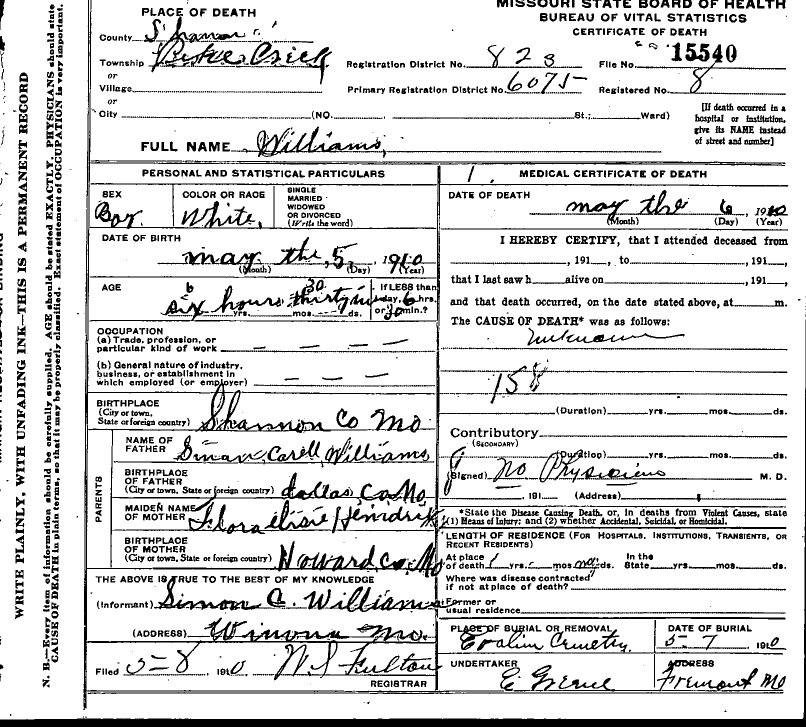 MISSOURI STATE BOARD OF HEALTH
BUREAU OF VITAL STATISTICS
CERTIFICATE OF DEATH
PLACE OF DEATH
County Shannon
Township Pike Creek
or
Village
or
City (NO. St.; Ward)
Registration District No. 823 File No. 15540
Primary Registration District No. 6075 Registered No. 8
[If death occurred in a hospital or institution, give its NAME instead of street and number]
FULL NAME Williams,
PERSONAL AND STATISTICAL PARTICULARS
SEX Boy.
COLOR OR RACE White,
SINGLE
MARRIED
WIDOWED
OR DIVORCED
(Write the word)
DATE OF BIRTH
may the, 5, 1910
(Month) (Day) (Year)
AGE
6 30
six hours thirty
yrs. mos. ds.
If LESS than
day, 6 hrs.
or 30 min.?
OCCUPATION
(a) Trade, profession, or
particular kind of work — — —
(b) General nature of industry,
business, or establishment in
which employed (or employer) — — —
BIRTHPLACE
(City or town,
State or foreign country) Shannon Co Mo
PARENTS
NAME OF
FATHER Williams
BIRTHPLACE
OF FATHER
(City or town, State or foreign country) dallas, Co. Mo,
MAIDEN NAME
OF MOTHER Flora
BIRTHPLACE
OF MOTHER
(City or town, State or foreign country) Howard, Co. Mo
THE ABOVE IS TRUE TO THE BEST OF MY KNOWLEDGE
(Informant) Simon C. Williams
(ADDRESS) Winona Mo.
Filed 5-8 1910 W. S. Fulton
REGISTRAR
1. MEDICAL CERTIFICATE OF DEATH
DATE OF DEATH
may the 6 1910
(Month) (Day) (Year)
I HEREBY CERTIFY, that I attended deceased from
, 191 , to , 191 ,
that I last saw h alive on , 191 ,
and that death occurred, on the date stated above, at m.
The CAUSE OF DEATH* was as follows:
unknown
158
(Duration) yrs. mos. ds.
Contributory
(SECONDARY)
(Duration) yrs. mos. ds.
(Signed) no Physician M. D.
191 (Address)
*State the Disease Causing Death, or, in deaths from Violent Causes, state
(1) Means of Injury; and (2) whether Accidental, Suicidal, or Homicidal.
LENGTH OF RESIDENCE (FOR HOSPITALS, INSTITUTIONS, TRANSIENTS, OR
RECENT RESIDENTS)
At place In the
of death yrs. mos. ds. State yrs. mos. ds.
Where was disease contracted
if not at place of death?
Former or
usual residence
PLACE OF BURIAL OR REMOVAL DATE OF BURIAL
Cemetry. 5-7 1910
UNDERTAKER ADDRESS
E Fremont Mo
WRITE PLAINLY, WITH UNFADING INK—THIS IS A PERMANENT RECORD
N. B.—Every item of information should be carefully supplied. AGE should be stated EXACTLY. PHYSICIANS should state
CAUSE OF DEATH in plain terms, so that it may be properly classified. Exact statement of OCCUPATION is very important.